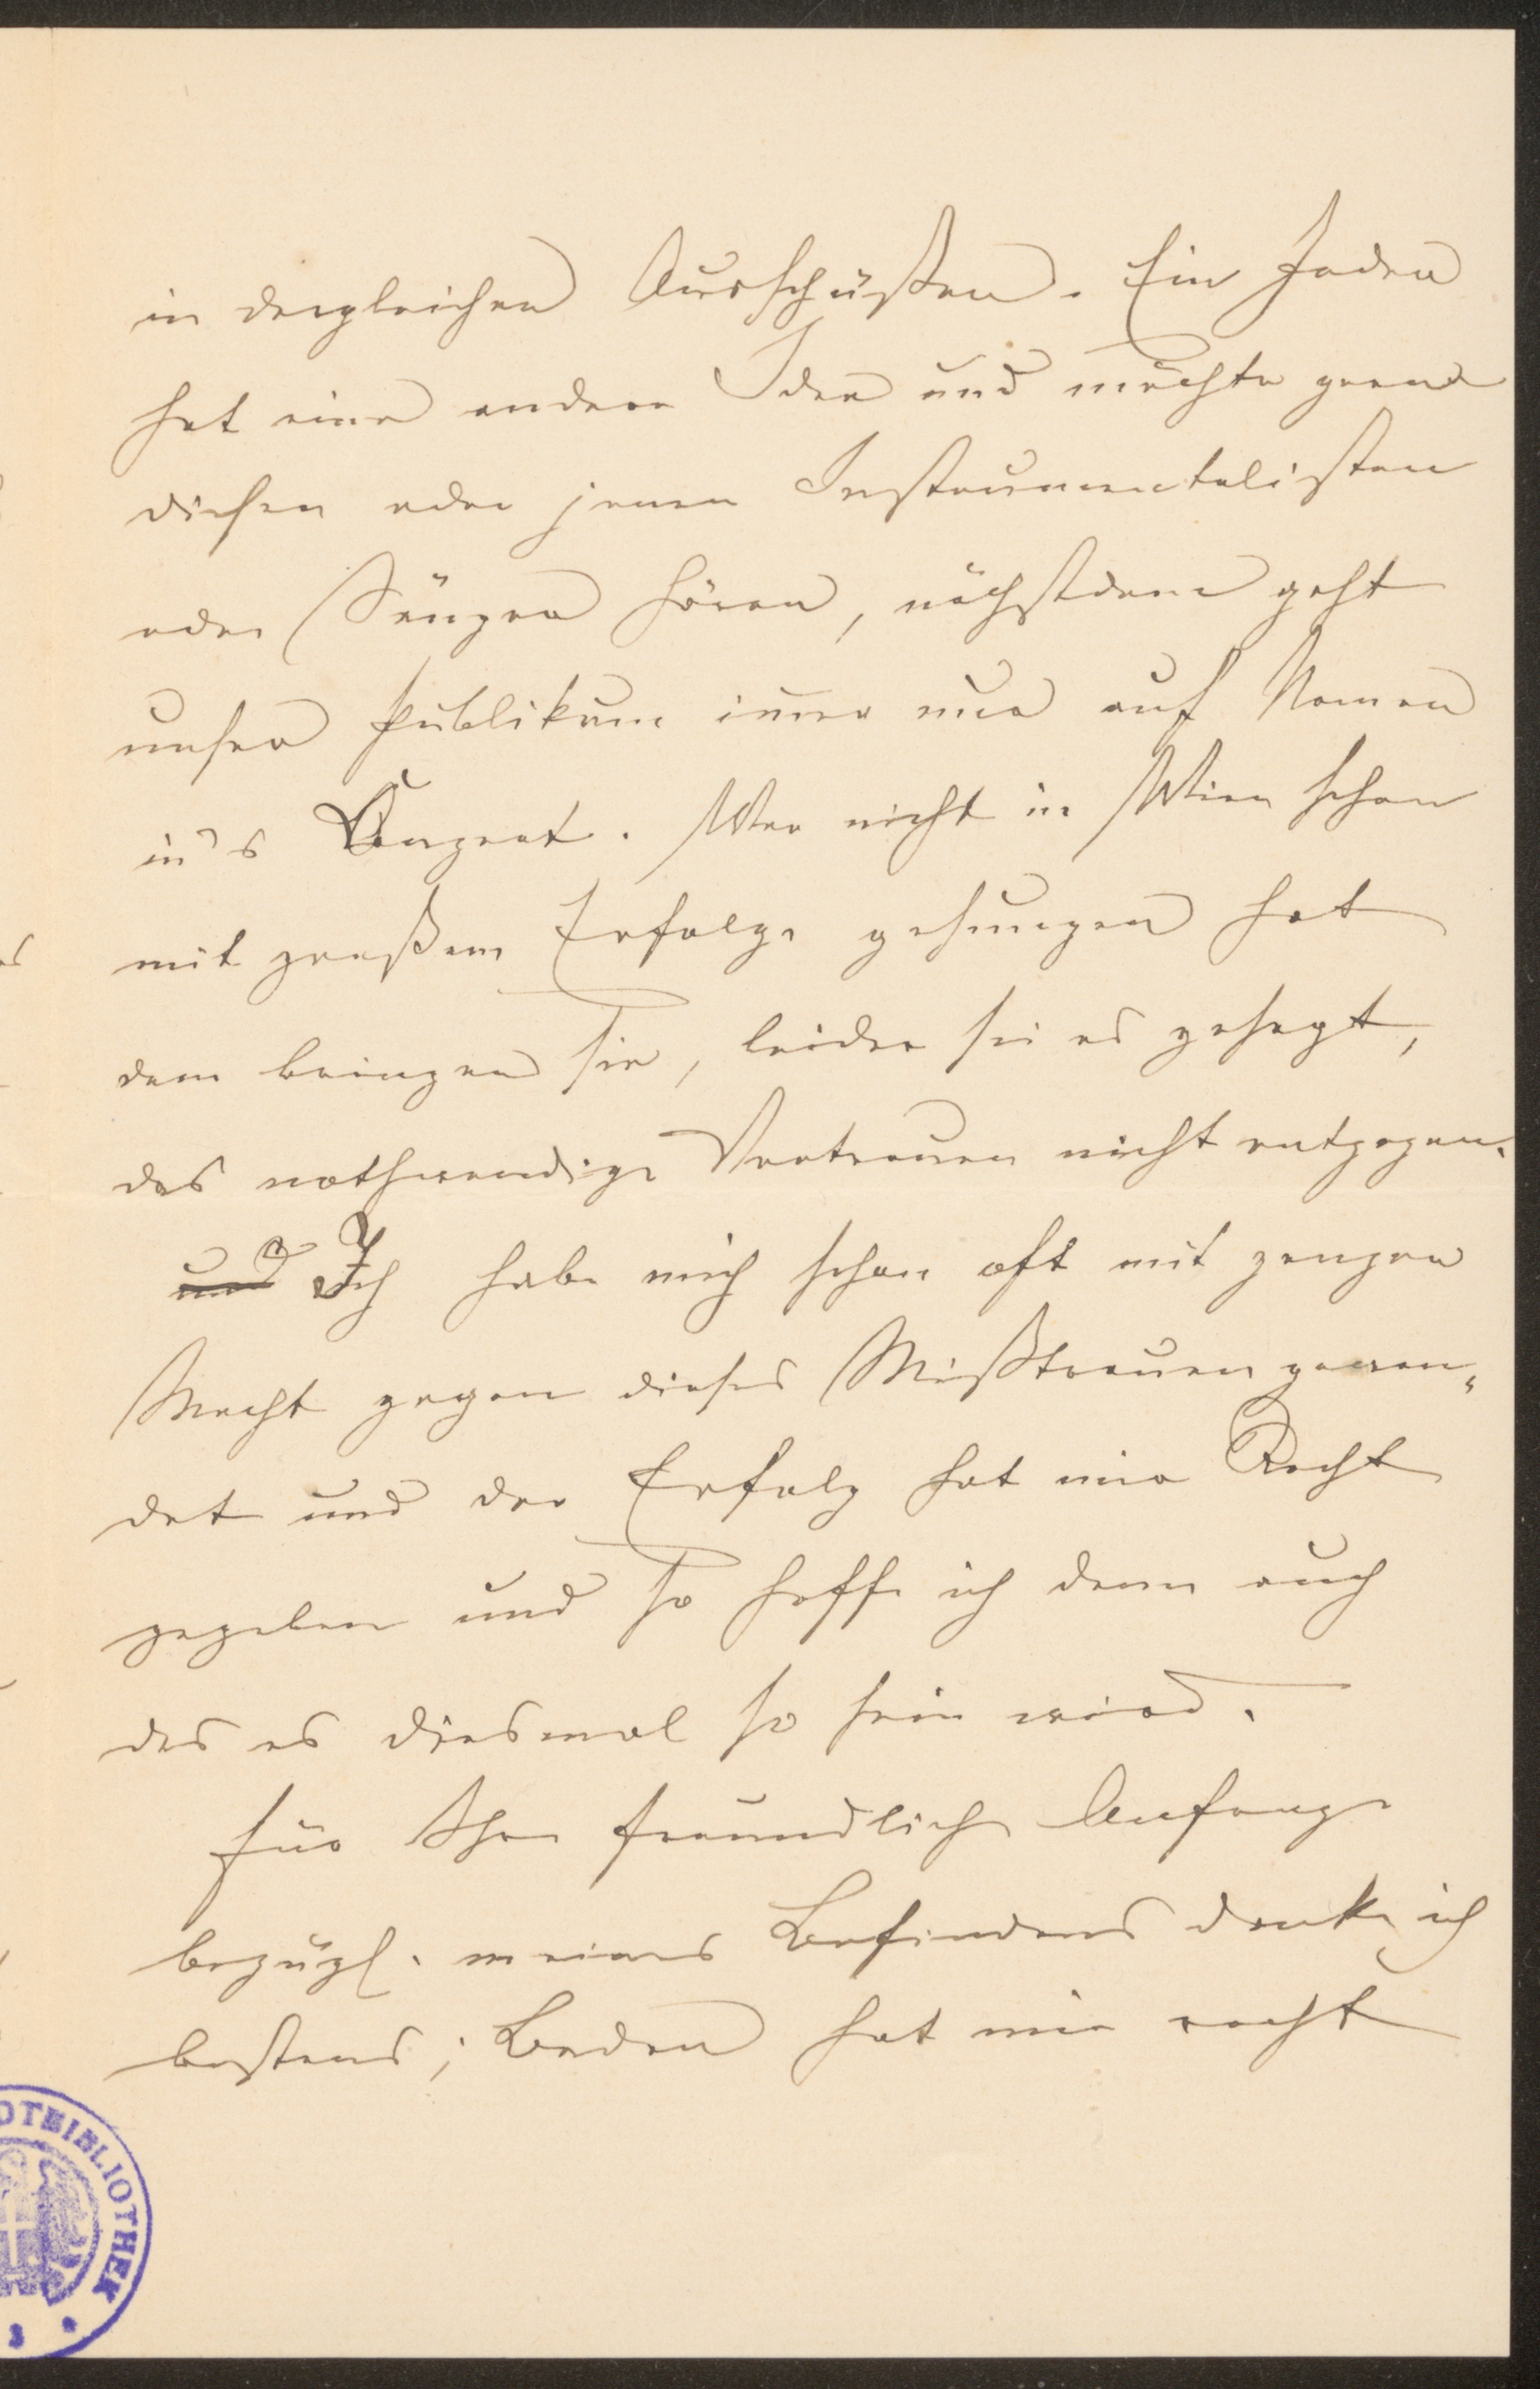 in dergleichen Ausschüßen. Ein Jeder
hat eine andere Idee und möchte gerne
diesen oder jenen Instrumentalisten
oder Sänger hören, nächstdem geht
unser Publikum immer nur auf Namen
in's Conzert. Wer nicht in Wien schon
mit großem Erfolge gesungen hat
dem bringen sie, leider sei es gesagt,
das nothwendige Vertrauen nicht entgegen.
und Ich habe mich schon oft mit ganzer
Macht gegen dieses Mißtrauen gewen-
det und der Erfolg hat mir Recht
gegeben und so hoffe ich denn auch
das es diesmal so sein wird.
Für Ihre freundliche Anfrage
bezügl. meines Befindens danke ich
bestens; Baden hat mir recht
OTBIBLIOTHEK